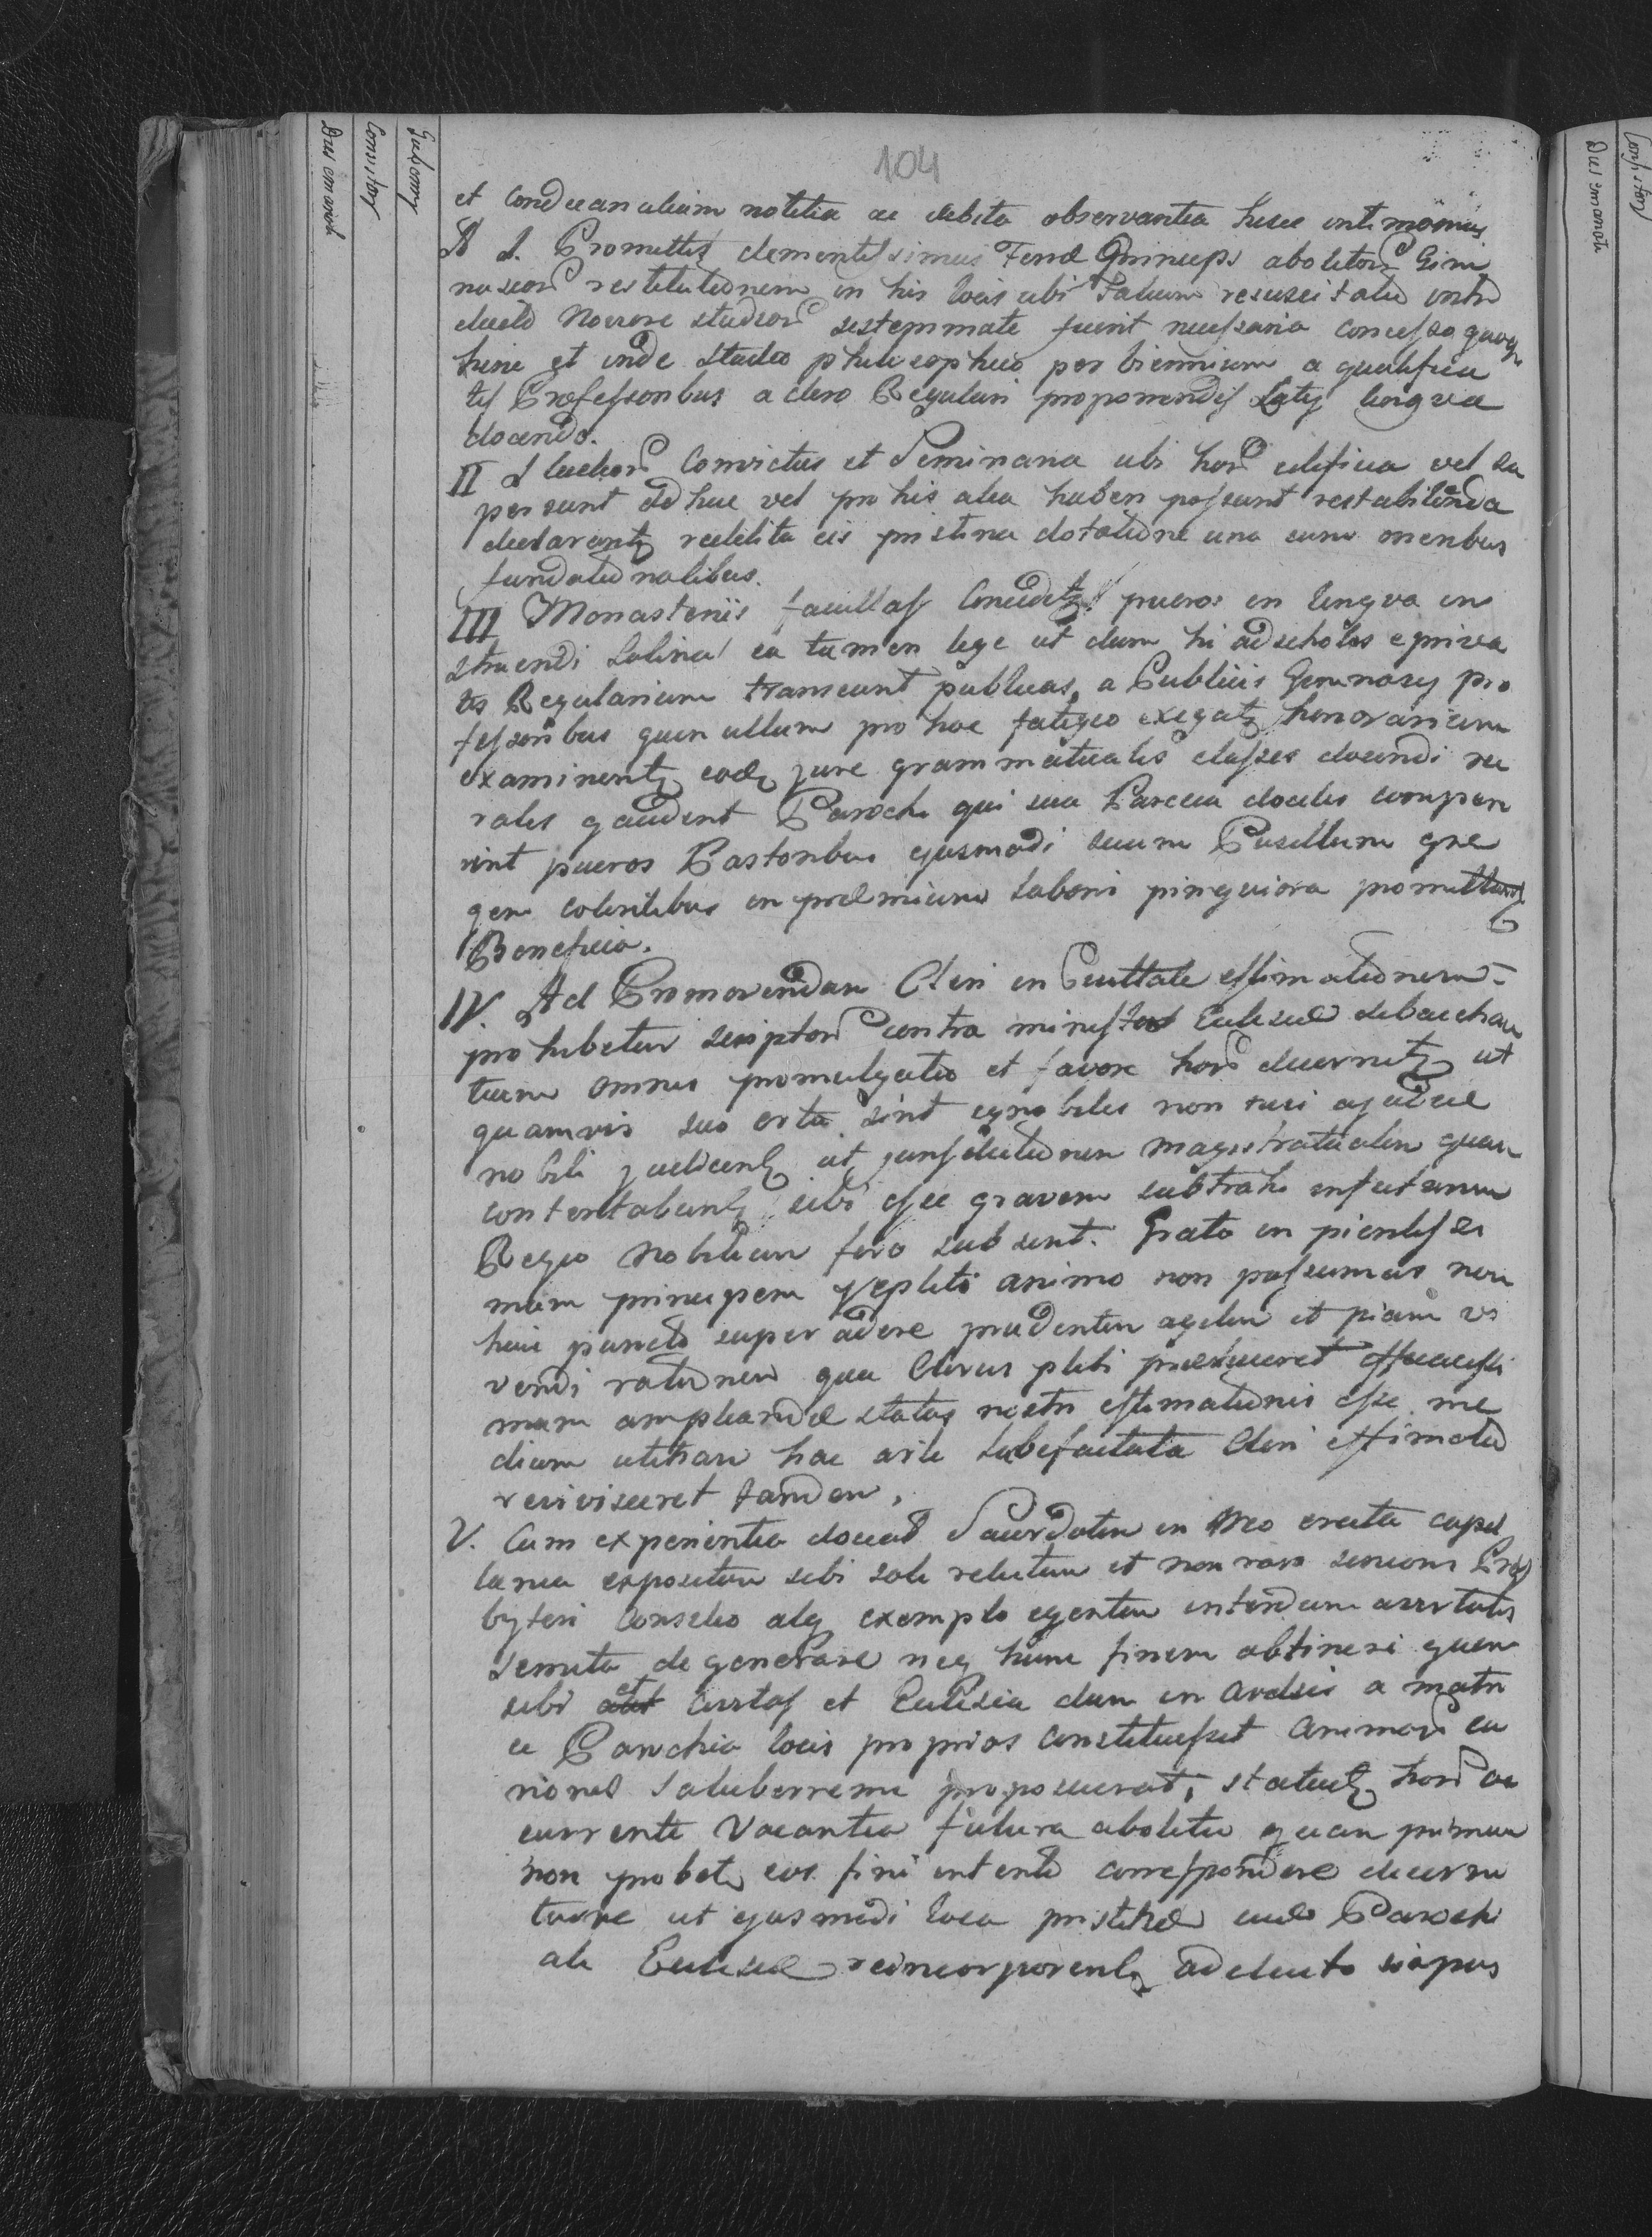 104
Gubern
Consistory
Dies emanati
et Condecanalium notitia ac debita observantia hisce intimamus.
I. Promittit clementissimus Terrae Princeps abolitorum Gim
nasiorum restitutionem in his locis ubi talium resuscitatio intro
ducto novorum studiorum sistemmate fuerit necessaria concesso quoque
hinc et inde studio philosophico per biennium a qualifica
tis Professoribus a clero Regulari proponendis Latinae lingvae
docendo.
II Studiosorum Convictus et Seminaria ubi horum edificia vel su
persunt adhuc vel pro his alia haberi possunt restabilienda
declarantur reddita eis pristina dotatione una cum oneribus
fundationalibus.
III Monasteriis facultas Conceditur pueros in lingva in
struendi Latina ea tamen lege ut dum hi ad scholas e priva
tis Regularium transeunt publicas, a Publicis Gymnasii pro
fessoribus quin ullum pro hoc fatigio exigatur honorarium
examinentur eodem jure grammaticales classes docendi ru
rales gaudent Parochi qui sua Paroecia dociles compere
rint pueros Pastoribus ejusmodi suum Pusillum gre
gem colentibus in praemium Laboris pinguiora promittuntur
Beneficia.
IV. Ad Promovendam Cleri in Civitate estimationem
prohibetur scriptorum contra ministros Ecclesiae debacchan
tium omnis promulgatio et favore horum decernitur ut
quamvis suo ortu sint ignobiles non nisi a judice
nobili judicentur et jurisdictionem magistratualem quam
contestabantur sibi esse gravem subtrahi in futurum
Regio Nobilium foro subsint. Grato in pientissi
mum principem repleti animo non possumus non
huic puncto superaddere prudentem agendi et piam vi
vendi rationem qua Clerus plebi praeluceret efficacissi
mum ampliandae status nostri estimationis esse me
dium utinam hac arte labefactata Cleri estimatio
revivisceret tandem.
V. Cum experientia doceat Sacerdotem in loco erecta capel
lania expositum sibi soli relictum et non raro senioris Pres
byteri Consilio atque exemplo egentem interdum a virtutis
semita degenerare neque hunc finem obtineri quem
sibi et Civitas et Ecclesia dum in avulsis a matri
ce Parochia locis proprios constituisset Animarum cu
riones saluberrime proposuerat, statuitur horum oc
currente Vacantia futura abolitio quam primum
non probetur eos fini intento correspondere decerni
turque ut ejusmodi loca pristinae suae Parochi
ali Ecclesiae reincorporentur adducto in opus
Consistory
Dies emanati